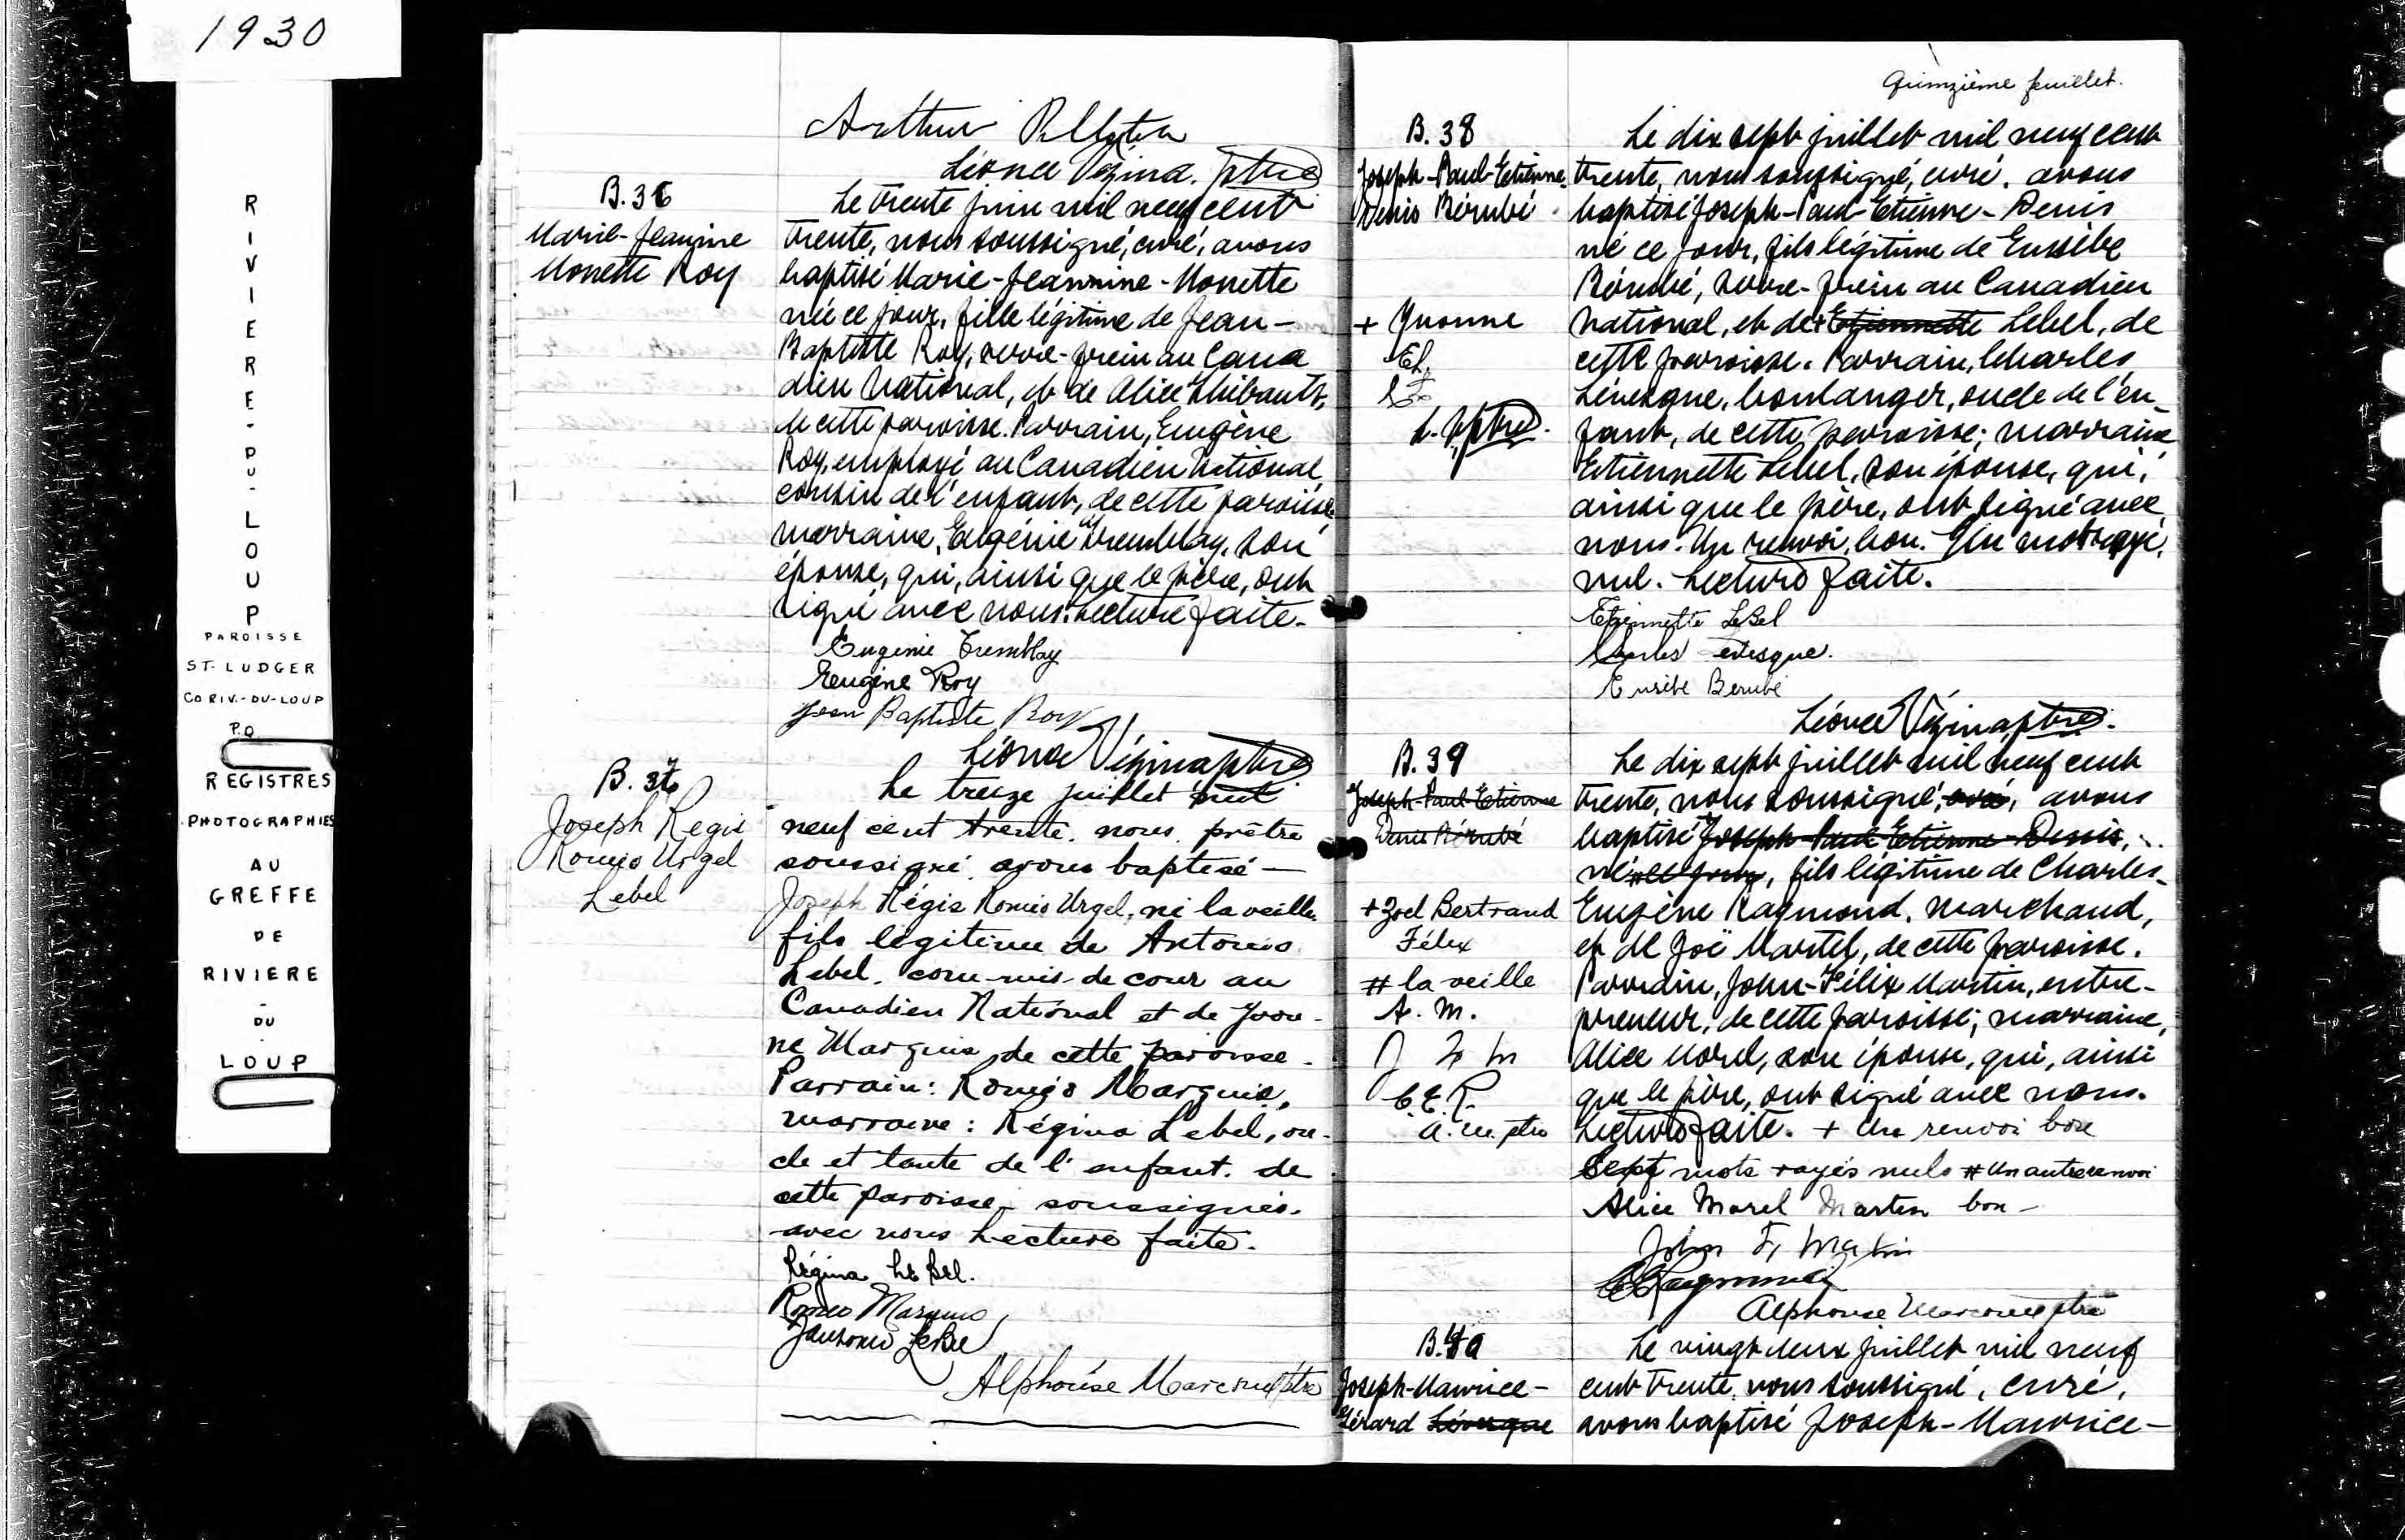 1930
RIVIERE-DU-LOUP
PAROISSE
ST-LUDGER
CO RIV.-DU-LOUP
P.Q.
REGISTRES
PHOTOGRAPHIES
AU
GREFFE
DE
RIVIERE
-
DU
LOUP
Arthur Pelletier
Léonce Vézina, ptre
B. 36
Marie-Jeannine
Monette Roy
Le trente juin mil neuf cent
trente, nous soussigné, curé, avons
baptisé Marie-Jeannine-Monette
née ce jour, fille légitime de Jean-
Baptiste Roy, serre-frein au Cana
dien National, et de Alice Thibault,
de cette paroisse. Parrain, Eugène
Roy, employé au Canadien National,
cousin de l'enfant, de cette paroisse,
marraine, Eugénie Tremblay, son
épouse, qui, ainsi que le père, ont
signé avec nous. Lecture faite.
Eugenie Tremblay
Eeugène Roy
Jean Baptiste Roy
Léonce Vézina ptre
B. 37
Joseph Regis
Roméo Urgel
Lebel
Le treize juillet mil
neuf cent trente, nous, prêtre
soussigné, avons baptisé —
Joseph Régis Roméo Urgel, né la veille
fils légitime de Antonio
Lebel, com-mis-de cour au
Canadien National et de Yvon-
ne Marquis, de cette paroisse.
Parrain: Roméo Marquis,
marraine: Régina Lebel, on-
cle et tante de l'enfant, de
cette paroisse, soussignés
avec nous Lecture faite.
Régina LeBel.
Romeo Marquis
J Antonio LeBel
Alphonse Marcoux ptre
Quinzième feuillet.
B. 38
Joseph-Paul-Etienne-
Denis Bérubé
Le dix sept juillet mil neuf cent
trente, nous soussigné, curé, avons
baptisé Joseph-Paul-Etienne-Denis
né ce jour, fils légitime de Eusèbe
Bérubé, serre-frein au Canadien
+ Yvonne
National, et de + Etiennette Lebel, de
cette paroisse. Parrain, Charles
Lévesque, boulanger, oncle de l'en-
fant, de cette paroisse; marraine
Etiennette Lebel, son épouse, qui,
ainsi que le père, ont signé avec
nous. Un renvoi, bon. Un mot rayé,
nul. Lecture faite.
Etiennette LeBel
Charles Lévesque.
Eusèbe Berubé
Léonce Vézina, ptre.
B. 39
Joseph-Paul-Etienne
Denis Bérubé
Le dix sept juillet mil neuf cent
trente, nous soussigné, curé, avons
baptisé Joseph-Paul-Etienne-Denis,
né # ce jour, fils légitime de Charles-
+ Zoel Bertrand
Félix
# la veille
A. M.
J F M
C. E. R.
A. M. ptre
Eugène Raymond, marchand,
et de Zoë Martel, de cette paroisse.
Parrain, John-Félix Martin, entre-
preneur, de cette paroisse; marraine,
Alice Morel, son épouse, qui, ainsi
que le père, ont signé avec nous.
Lecture faite. + Un renvoi bon
Sept mots rayés nuls # Un autre renvoi
Alice Morel Martin bon -
John F. Martin
C E Raymond
Alphonse Marcoux ptre
B. 40
Joseph-Maurice-
Gérard Lévesque
Le vingt deux juillet mil neuf
cent trente, nous soussigné, curé,
avons baptisé Joseph-Maurice-